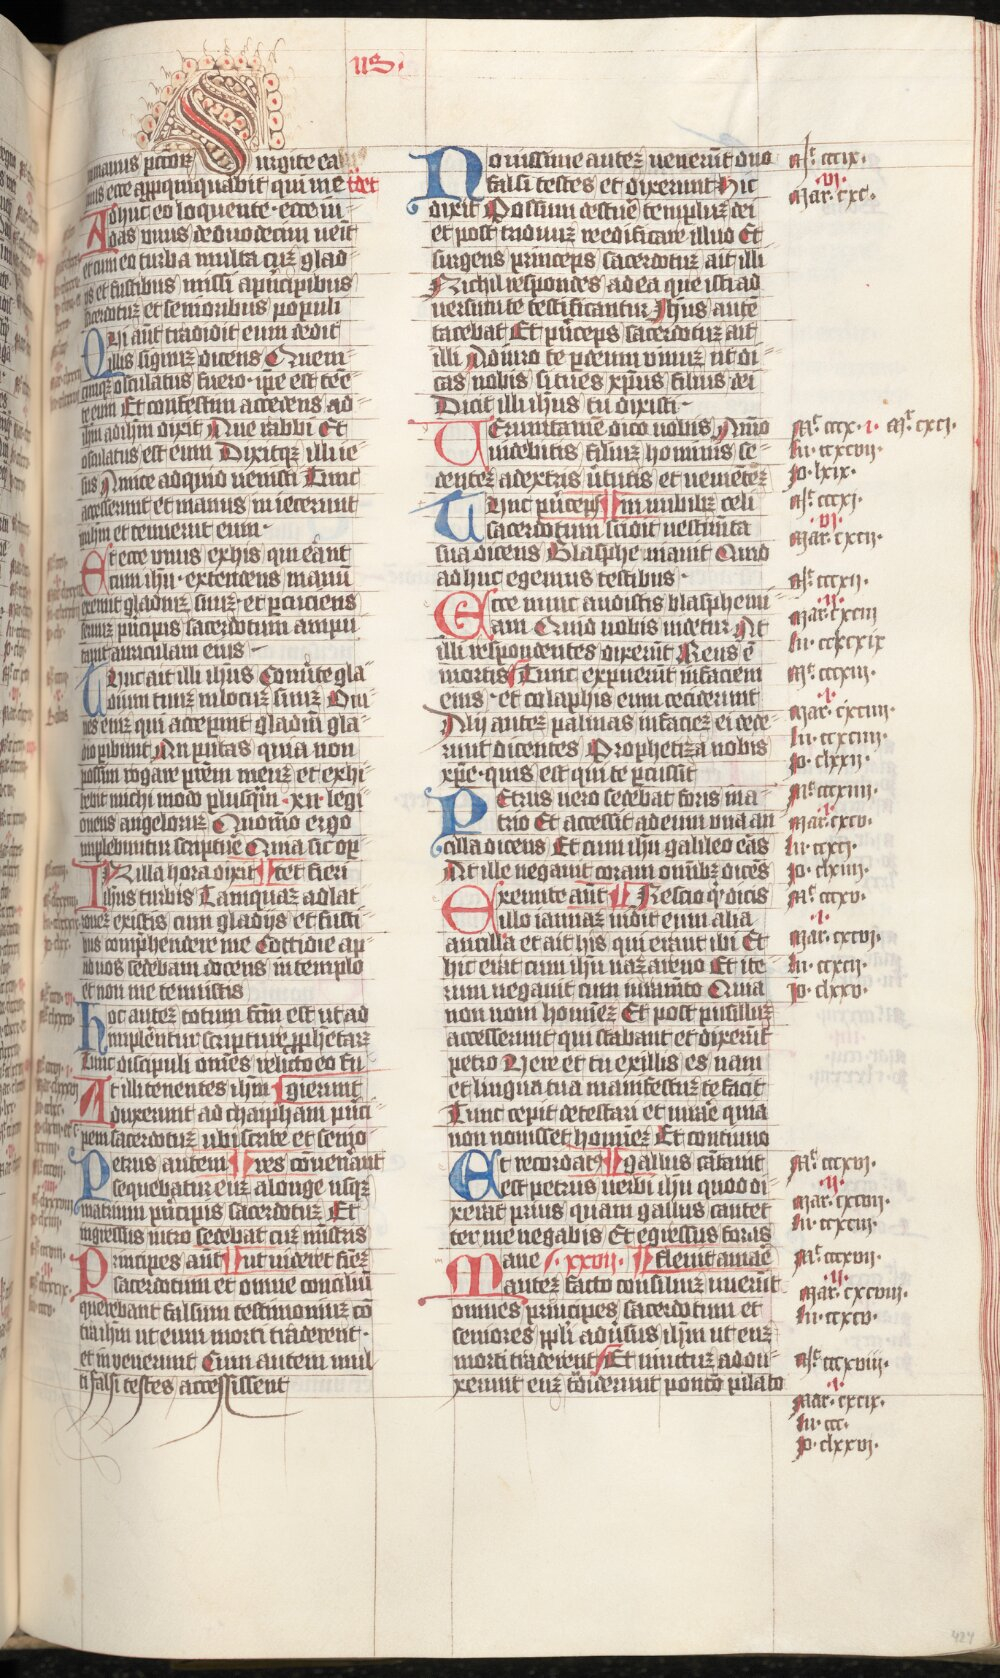 us·
in manus peccoꝝ Surgite ea
mus ecce app̅ropinquabit qui me tͣdet
Adhuc eo loquente· ecce iu
das unus de duodecim uenit
et cum eo turba multa cuꝫ glad-
ijs et fustibus missi a principibus
sacerdotuꝫ et senioribus populi
Qui aut̅ tradidit eum dedit
illis signuꝫ dicens Quem-
cumqꝫ osculatus fuero· ip̅e est te̅e-
te eum Et confestim accedens ad
ih̅m dixit Aue rabbi Et
osculatus est eum Dixitqꝫ illi ie-
sus Amice ad quid uenisti Tunc
accesserunt et manus iniecerunt
in ih̅m et tenuerunt eum·
Et ecce unus ex his qui era̅nt
cum ih̅u· extendens manu̅
exemit gladiuꝫ suuꝫ· et percuciens
seruuꝫ principis sacerdotum ampu
tauit auriculam eius
Tunc ait illi ih̅us Conuerte gla-
dium tuuꝫ in locuꝫ suuꝫ Om-
nes eniꝫ qui acceperint gladiu̅ gla-
dio peribunt An putas quia non
possum rogare pat̅rem meuꝫ et exhi-
bebit michi modo plusqua̅m ·xii· legi-
ones angeloruꝫ Quomo̅ ergo
implebuntur scripture Quia sic op-
In illa hora dixit ¶ tet fieri
ih̅us turbis Tamquaꝫ ad lat-
roneꝫ existis cum gladijs et fusti-
bus compr̅hendere me Cottidie ap-
ud uos sedebam docens in templo
et non me tenuistis
Hoc auteꝫ totum fc̅m est ut ad
implentur scripture prophetaꝝ
Tunc discipuli om̅es relicto eo fu-
At illi tenentes ih̅m ¶ gierunt
duxerunt ad chaypham prin̅ci-
pem sacerdotuꝫ ubi scribe et senio-
Petrus autem ¶ res co̅uenerant
sequebatur euꝫ a longe usqꝫ
in atrium principis sacerdotuꝫ Et
ingressus intro sedebat cuꝫ ministris
Principes aut̅ ¶ ut uideret fineꝫ
sacerdotum et omne conciliu̅
querebant falsum testimoniuꝫ co̅-
tra ih̅m ut eum morti traderent·
et in uenerunt Cum autem mul-
ti falsi testes accessissent
Nouissime auteꝫ uenerunt duo
falsi testes et dixerunt Hic
dixit Possum destrue̅ templuꝫ dei
et post triduuꝫ reedificare illud Et
surgens princeps sacerdotuꝫ ait illi
Nichil respondes ad ea que isti ad
uersum te testificantur Ih̅us aute̅
tacebat Et princeps sacerdotuꝫ ait
illi Adiuro te per deum uiuuꝫ ut di-
cas nobis si tu es xp̅us filius dei
Dicit illi ih̅us tu dixisti·
Uerumtame̅ dico uobis Amo̅
uidebitis filiuꝫ hominis se-
denteꝫ a dextris uirtutis et uenie̅teꝫ
Tunc princeps ¶ in nubibꝫ celi
sacerdotum scidit uestimenta
sua dicens Blasphemauit Quid
adhuc egemus testibus·
Ecce nunc audistis blasphemi
am Quid uobis uidetur At
illi respondentes dixerunt Reus e̅
mortis Tunc expuerunt in faciem
eius· et colaphis eum ceciderunt
Alij auteꝫ palmas in facieꝫ ei dede-
runt dicentes Prophetiza nobis
xp̅e· quis est qui te percussit
Petrus uero sedebat foris in a-
trio Et accessit ad eum una an-
cilla dicens Et cum ih̅u galileo eras
At ille negauit coram omnibꝫ dice̅s
Exeunte aut̅ ¶ Nescio qd̅ dicis
illo ianuaꝫ uidit eum alia
ancilla et ait his qui erant ibi Et
hic erat cum ih̅u nazareno Et ite-
rum negauit cum iuramento Quia
non noui homineꝫ Et post pusilluꝫ
accesserunt qui stabant et dixerunt
petro Vere et tu ex illis es nam
et lingua tua manifestuꝫ te facit
Tunc cepit detestari et iurare quia
non nouisset homineꝫ Et continuo
Et recordatus ¶ gallus cantauit
est petrus uerbi ih̅u quod di-
xerat prius quam gallus cantet
ter me negabis Et egressus foras
Mane ·xxvii· ¶ fleuit amare
auteꝫ facto consiliuꝫ inierunt
omnes principes sacerdotum et
seniores pp̅li aduersus ih̅m ut euꝫ
morti traderent Et uinctuꝫ addu-
xerunt euꝫ tradiderunt poncio pilato
Mͭ· cccix·
·vi·
Mar· cxc·
Mͭ· cccx· ·i· Mͬ· cxci·
lu· ccxcvii·
Jo· lxix·
Mͭ· cccxi·
·vi·
Mar· cxcii·
Mͭ· cccxii·
·ii·
Mar· cxciii
lu· ccxcix
Mͭ· cccxiii·
·i·
Mar· cxciiii·
lu· ccxciiii·
Jo· clxxii·
Mͭ· cccxiiii·
·i·
Mar· cxcv·
lu· ccxci·
Jo· clxiii·
Mͭ· cccxv·
·i·
Mar· cxcvi·
lu· ccxcii·
Jo· clxxv·
Mͭ· cccxvi·
·ii·
Mar· cxcvii·
lu· ccxciii·
Mͭ· cccxvii·
·ii·
Mar· cxcviii·
lu· ccxcv·
Mͭ· cccxviii·
·i·
Mar· cxcix·
lu· ccc·
Jo· clxxvi·
424